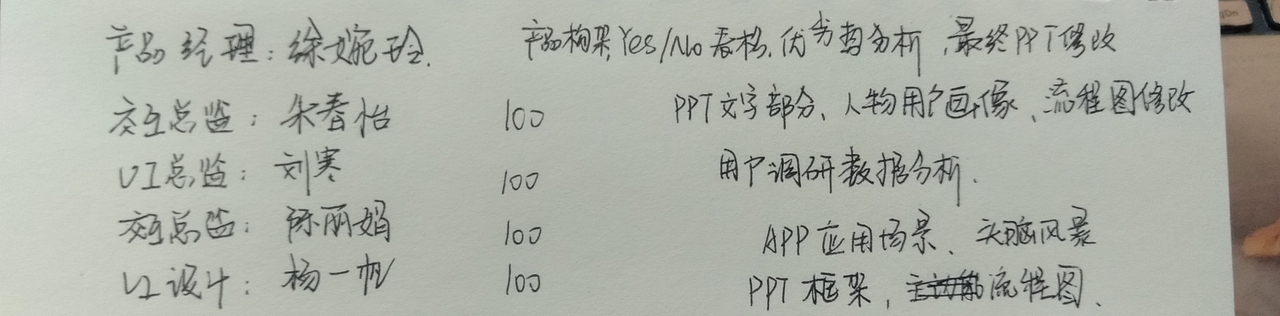 产品经理：徐婉玲. 产品构架, Yes/No 表格, 优劣势分析, 最终PPT修改
交互总监：朱春怡 100 PPT文字部分、人物用户画像、流程图修改
UI总监：刘寒 100 用户调研数据分析.
交互总监：陈丽娟 100 APP应用场景、头脑风暴
UI设计：杨一帆 100 PPT框架, 流程图.